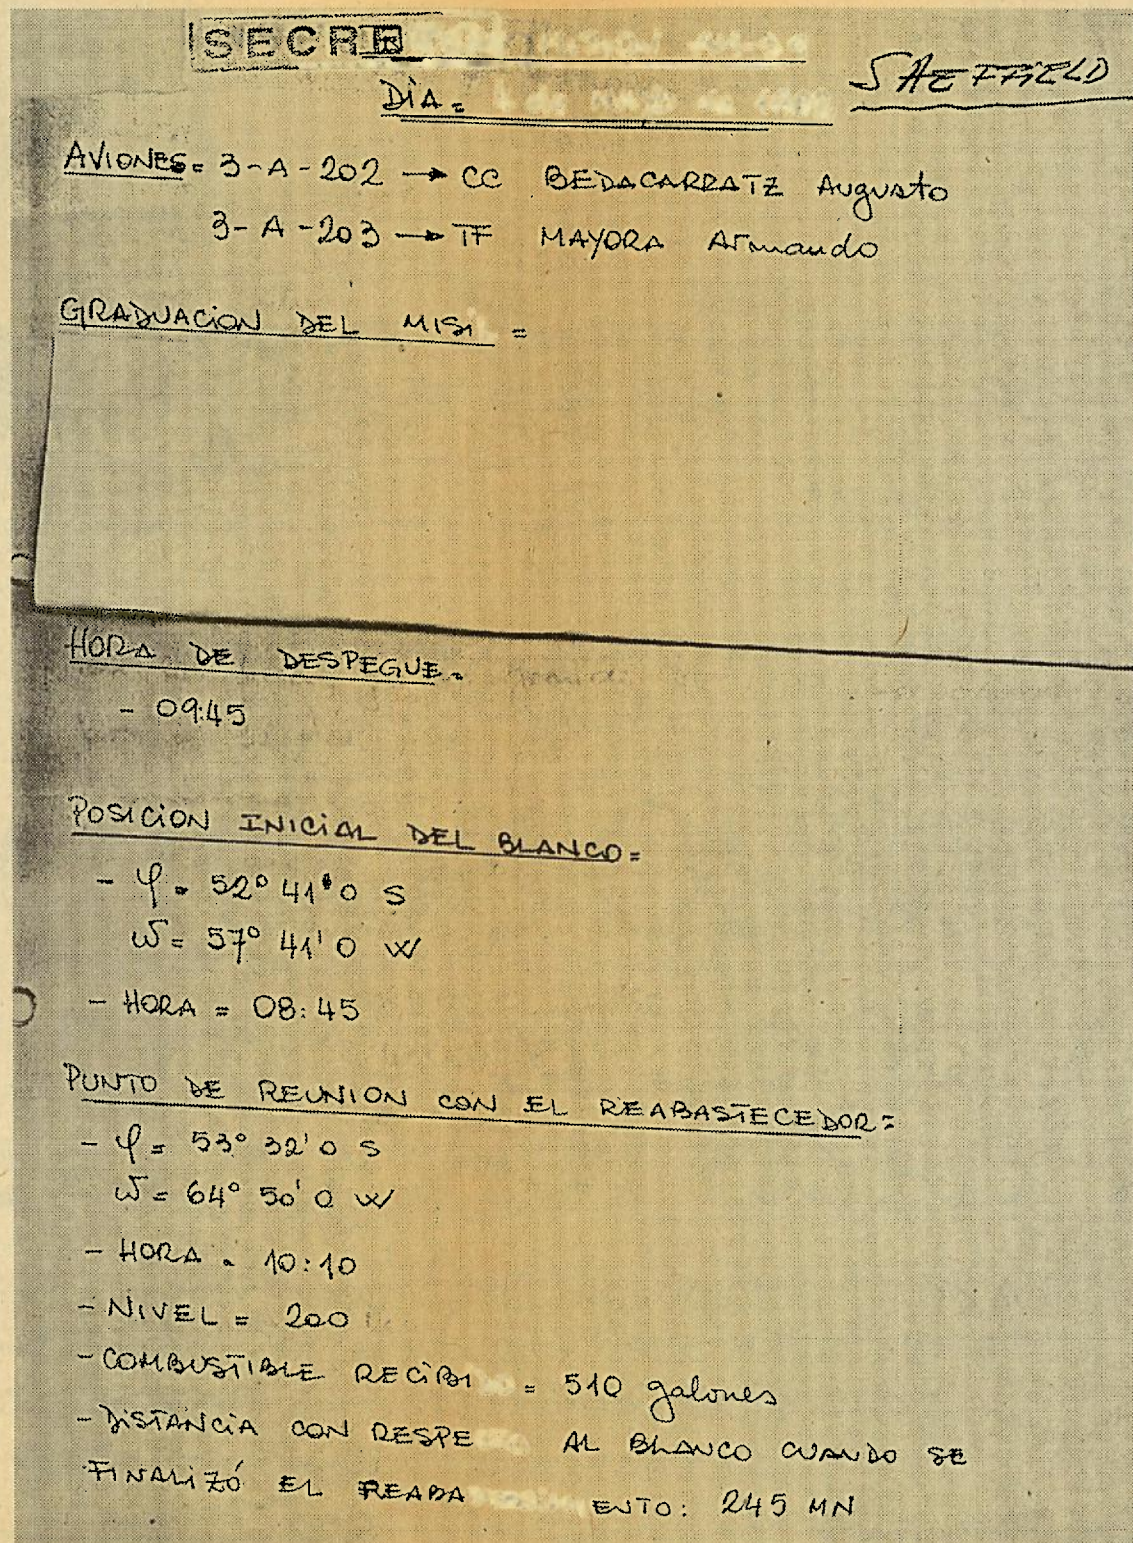 SECRE
SHEFFIELD
DÌA=
AVIONES= 3-A-202 → CC BEDACARRATZ Augusto
3-A-203 → TF MAYORA Armando
GRADUACION DEL MISI =
HORA DE DESPEGUE=
- 09:45
POSICION INICIAL DEL BLANCO=
- φ= 52° 41' 0 S
ω= 57° 41' 0 W
- HORA = 08:45
PUNTO DE REUNION CON EL REABASTECEDOR=
- φ= 53° 32' 0 S
ω= 64° 50' 0 W
- HORA = 10:10
- NIVEL = 200
- COMBUSTIBLE RECIBI = 510 galones
- DISTANCIA CON RESPE AL BLANCO CUANDO SE
FINALIZÓ EL REABA ENTO: 245 MN